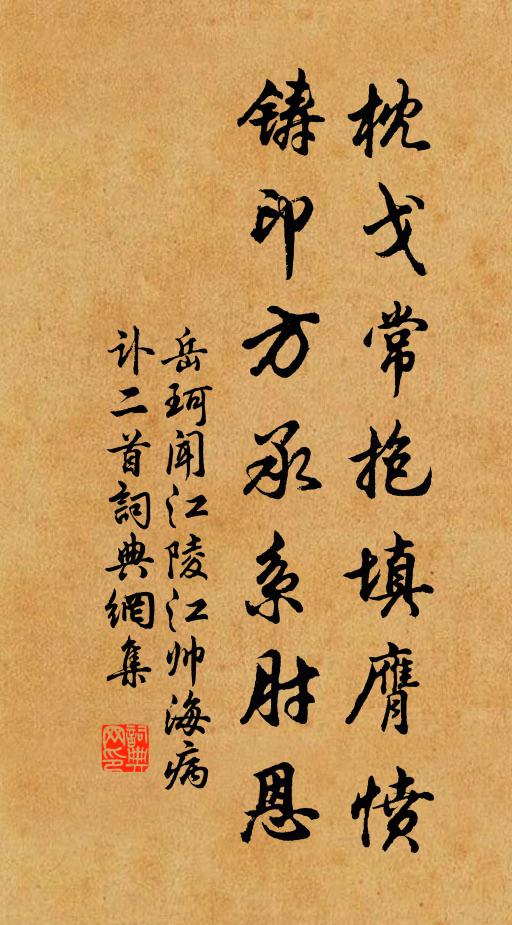 枕戈常抱填膺愤
铸印方承系肘恩
岳珂闻江陵江帅海病
讣二首詞典網集
詞典网印